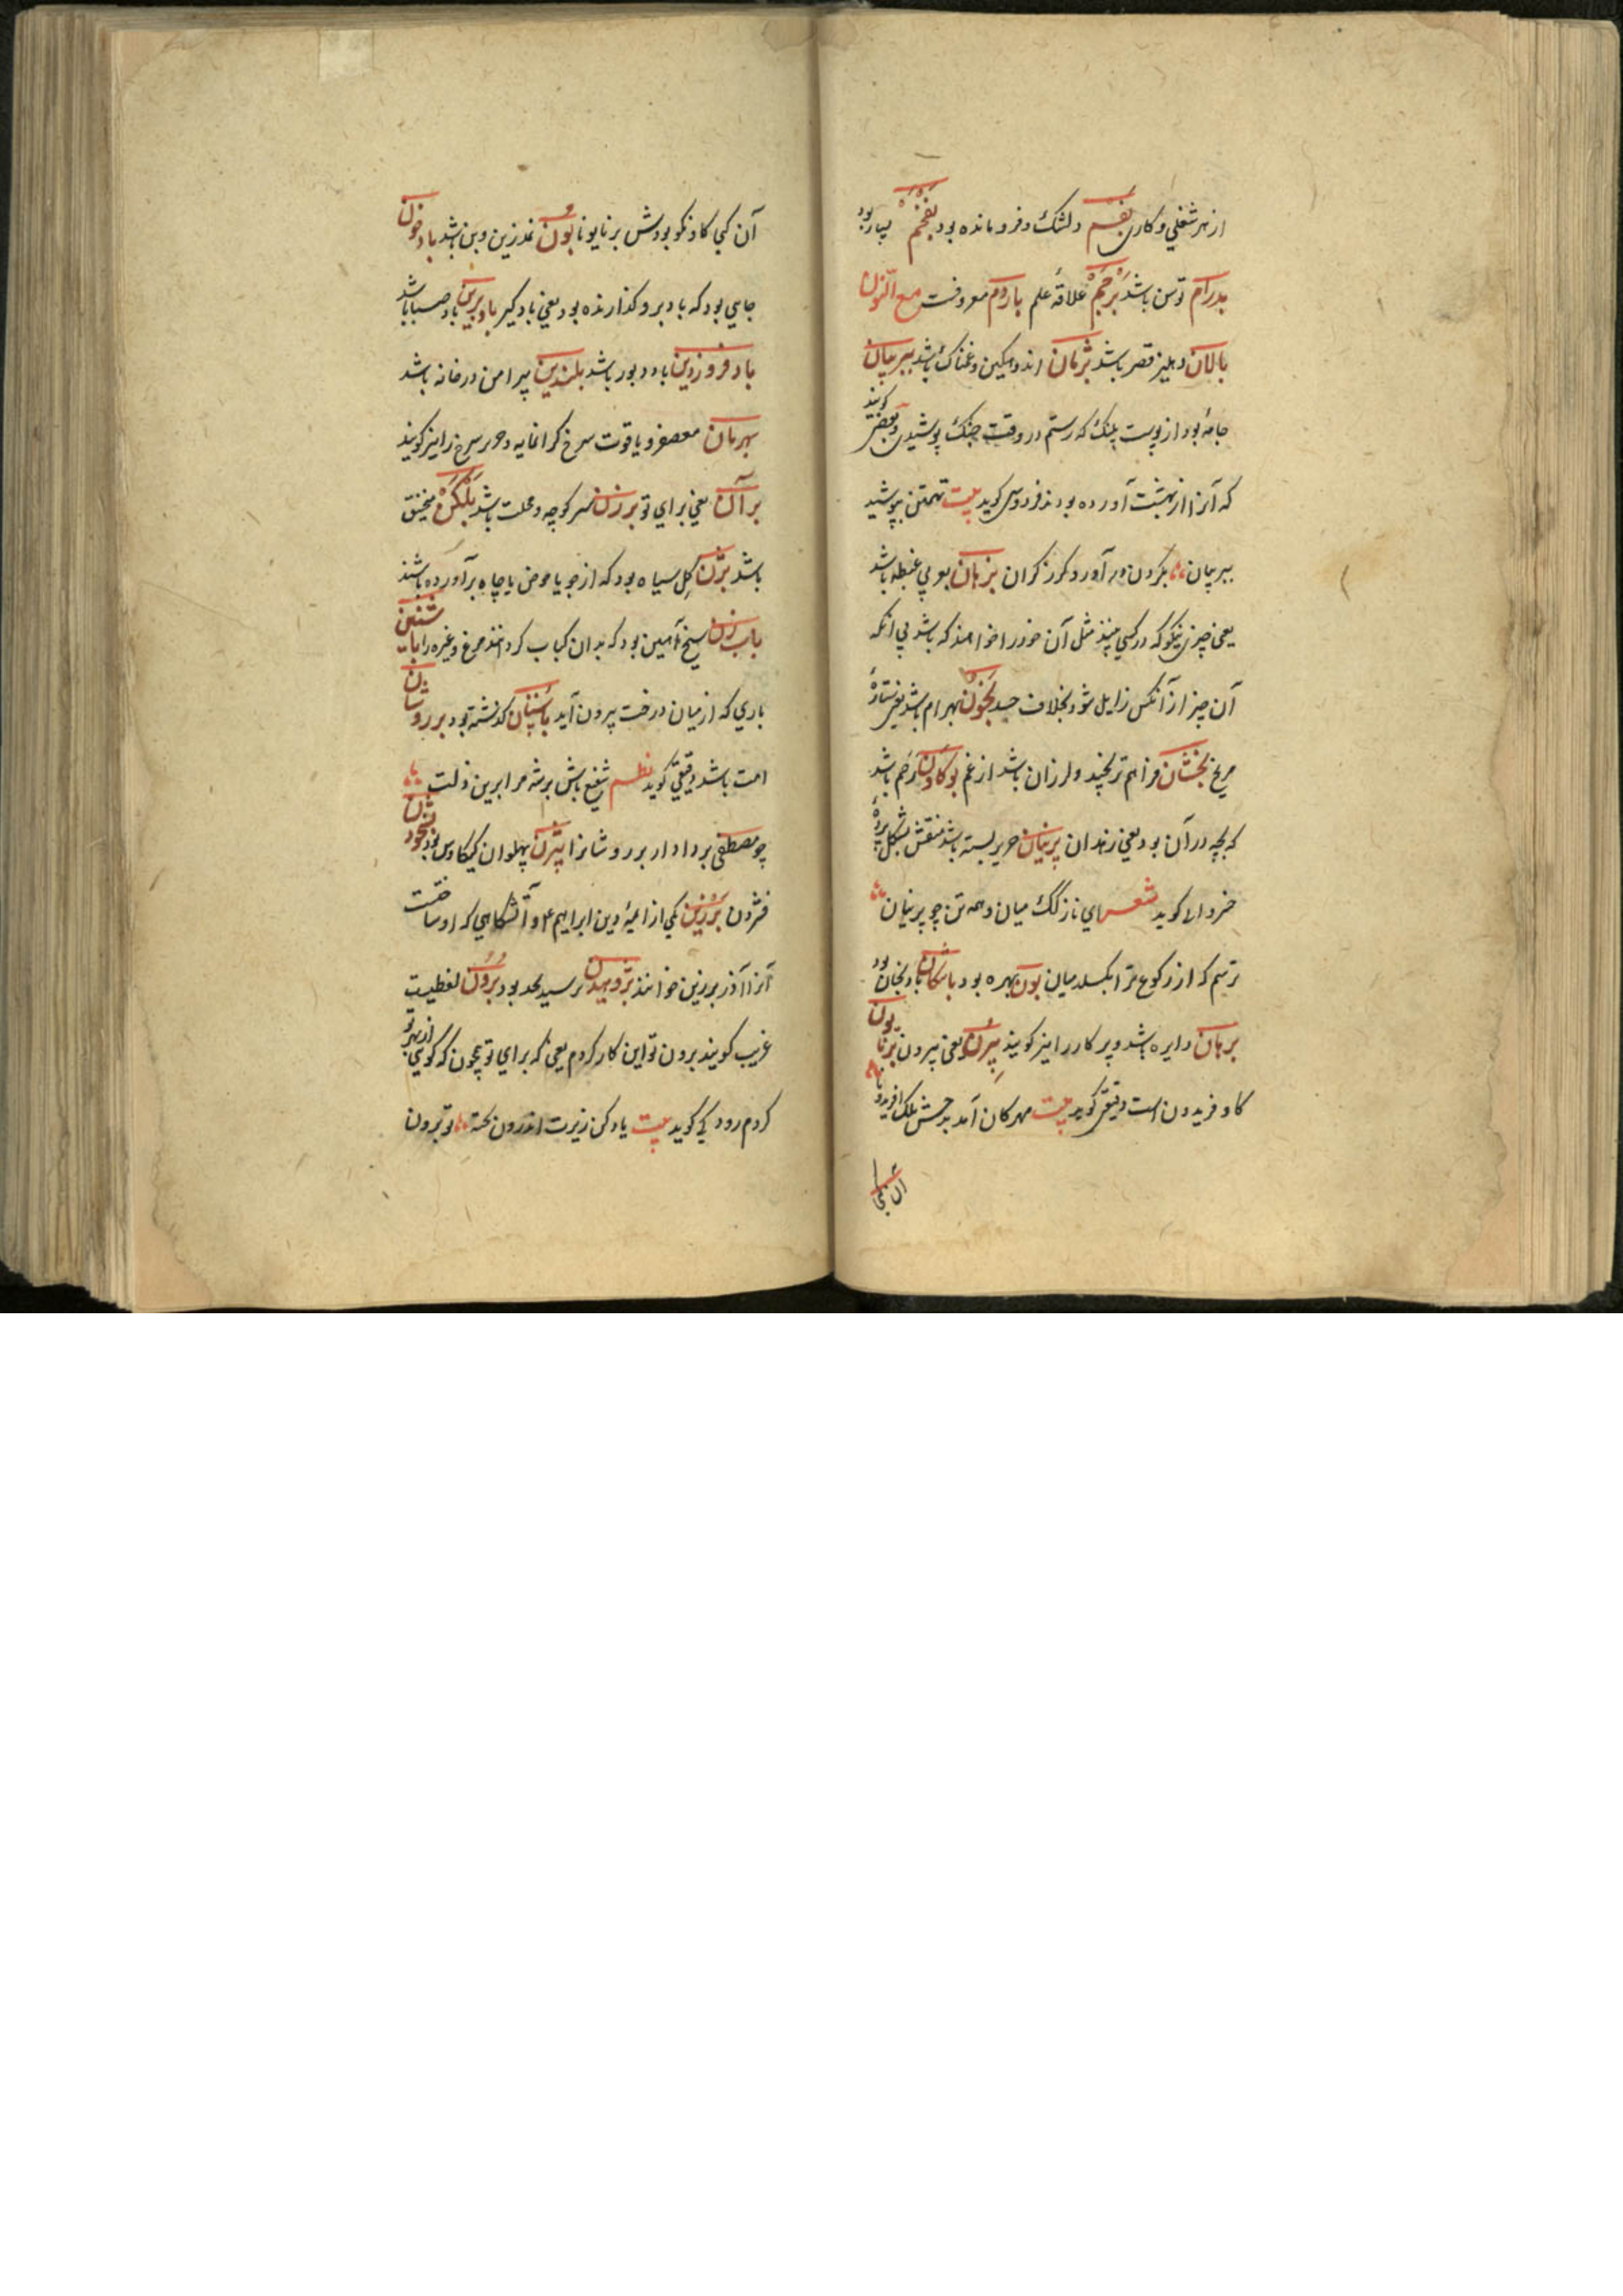 از هر شغلی و کاری بفسم دلتنگ و فرو مانده بود بفخم بسیار بود
بدرام توسن باشد برجم علاقهٔ علم باردم معروفست مع النون
بالان دهلیز قصر باشد بژمان اندوهکین و غمناک باشد ببر بیان
جامهٔ بود از پوست پلنک که رستم در وقت جنک پوشیدی و بعضی کویند
که آنرا از بهشت آورده بودند فردوسی کوید بیت تهمتن بپوشید
ببر بیان بکردن در آورد کرز کران بزهان بوبی غبطه باشد
یعنی چیزی نیکو که در کسی بیند مثل آن خود را خواهند که باشد بی آنکه
آن چیز از آنکس زایل شود بخلاف حسد بخون بهرام باشد یعنی ستارهٔ
مریخ بخشان فراهم ترنجید و لرزان باشد از غم بوکان رحم باشد
که بچه در آن بود یعنی زهدان پرنیان حریر بسته باشد منقش بشکل پردهٔ
خسروانی کوید شعر ای نازکک میان و همه تن چو پرنیان
ترسم که از رکوع ترا بکسلد میان بون بهره بود باتنکان بادنجان بود
برهان دایره باشد و پرکار را نیز کویند بیرن یعنی بیرون برنایون
کاو فریدون است دقیقی کوید بیت مهرکان آمد جشن ملک افریدونا
آن کجا
آن کجا کاو نکو بودش برنایونا بون غدزین و بن باشد بادخون
جایی بود که باد برو کذارنده بود یعنی بادکیر باد برین باد صبا باشد
باد فروزدین باد دبور باشد بلندین پیرامن در خانه باشد
بهرمان معصفر و یاقوت سرخ کرانمایه و حریر سرخ را نیز کویند
برآن یعنی برای تو برزن سر کوچه و محلت باشد بلکن منجنیق
باشد بژن کل سیاه بود که از جوی یا حوض یا چاه برآورده باشند
بابزن سیخ آهنین بود که بدان کباب کردانند مرغ و غیره را بات
باری که از میان درخت بیرون آید باستان کذشته بود برروشان
امت باشد دقیقی کوید نظم شفیع باش برشه مرا برین زلت
چو مصطفی بر دادار برروشانرا بیژن پهلوان کیکاوس بود
فشردن برزین یکی از ائمهٔ دین ابراهیم و آتشکاهی که او ساخت
آنرا آذر برزین خوانند برسید بحد بود برون لفظیست
غریب کویند برون تو این کار کردم یعنی که برای تو همچون که کویی از بهر تو
کردم رودکی کوید بیت یاد کن زیرت اندرون تو برون